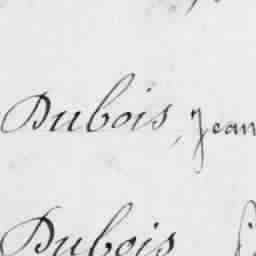 Dubois, Jean
Dubois